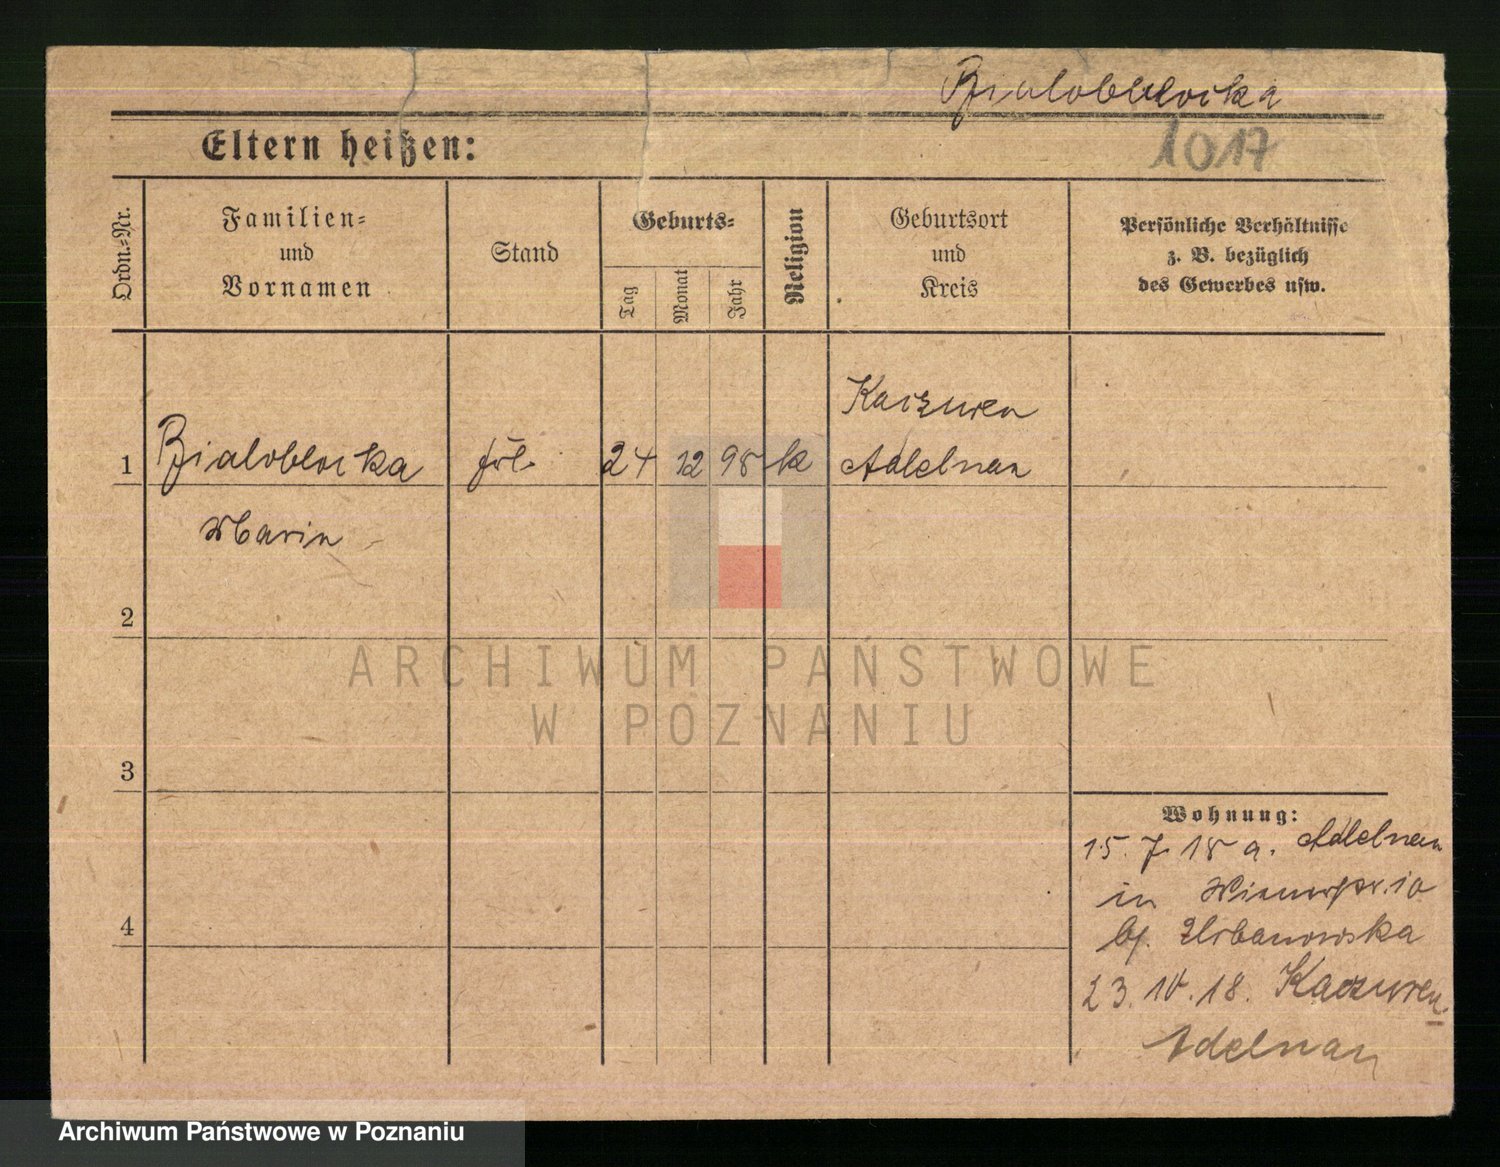 Bialoblocka
1017
Eltern heißen:
Ordn.-Nr.
Familien-
und
Vornamen
Stand
Geburts-
Tag
Monat
Jahr
Religion
Geburtsort
und
Kreis
Persönliche Verhältnisse
z. B. bezüglich
des Gewerbes usw.
1 Bialoblocka 24 12 98 k Kaczuren
Adelnau
Maria
2
3
4
Wohnung:
15. 7. 18 a. Adelnau
in
bj. Urbanowska
23. 10. 18. Kaczuren
Adelnau
ARCHIWUM PAŃSTWOWE
W POZNANIU
Archiwum Państwowe w Poznaniu